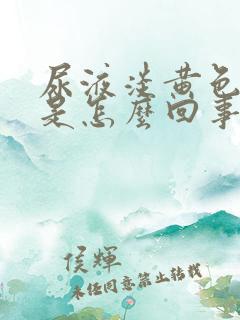 尿液淡黄色
是怎麽回事
侯輝
未经同意禁止转载